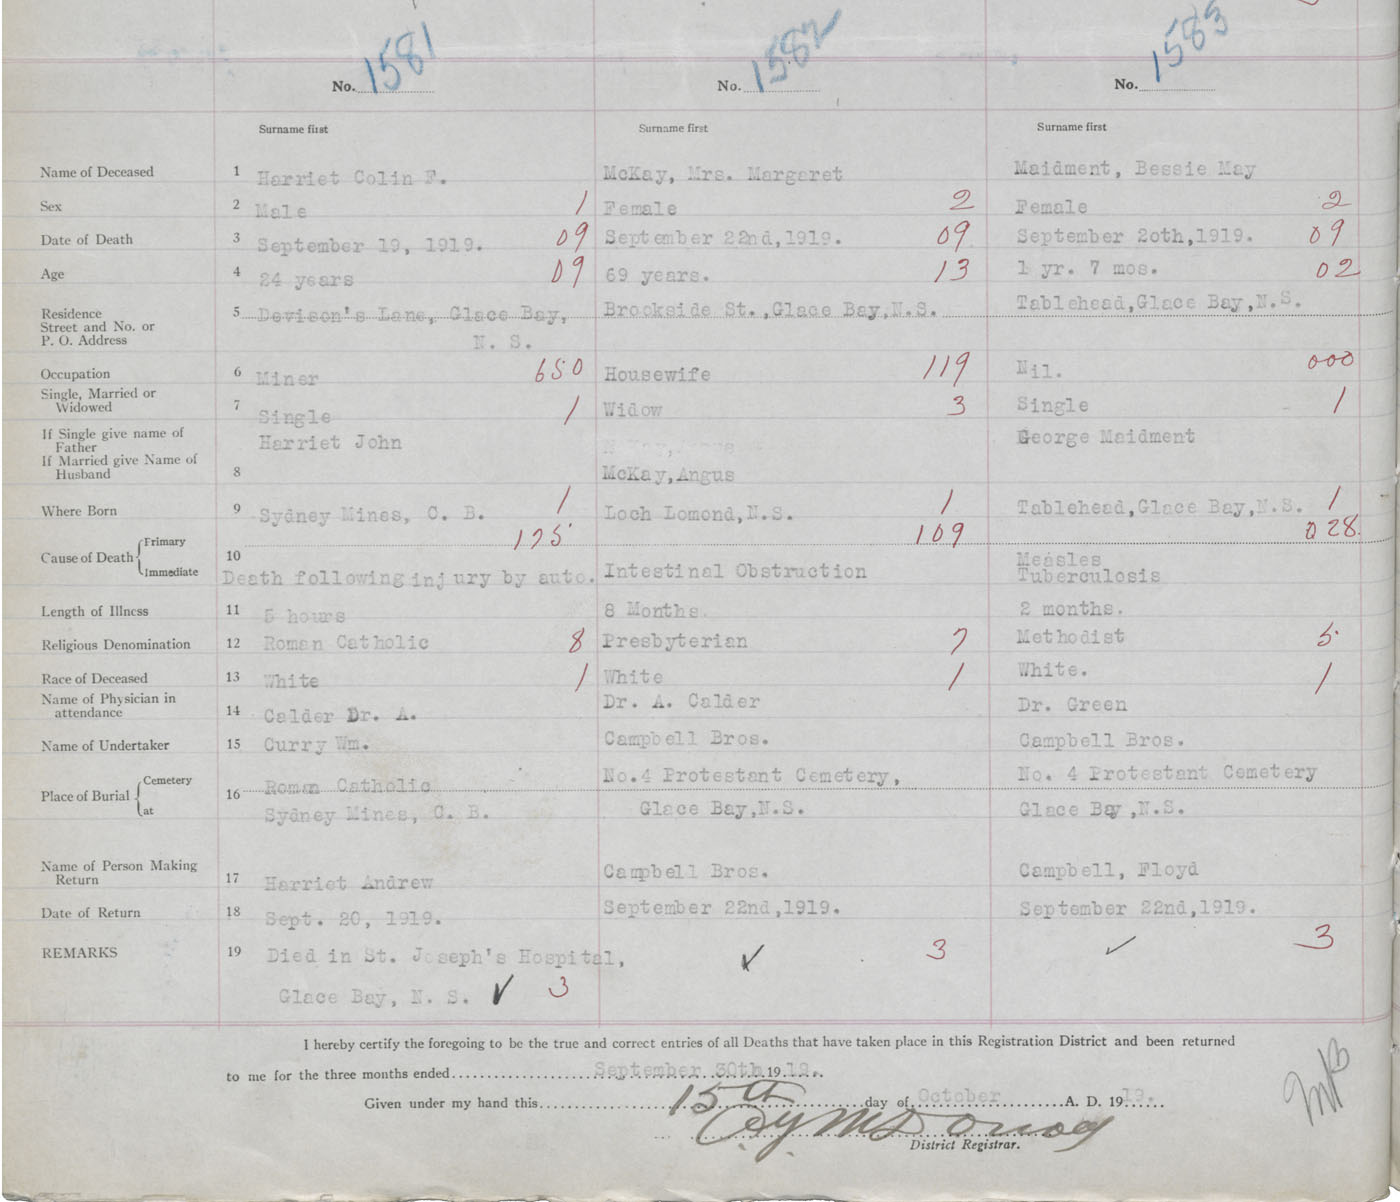 1581 1582 1583
No. No. No.
Surname first Surname first Surname first
Name of Deceased 1 Harriet Colin F. McKay, Mrs. Margaret Maidment, Bessie May
Sex 2 Male 1 Female 2 Female 2
Date of Death 3 September 19, 1919. 09 September 22nd,1919. 09 September 20th,1919. 09
Age 4 24 years 09 69 years. 13 1 yr. 7 mos. 02
Residence
Street and No. or
P. O. Address
5 Devison's Lane, Glace Bay, Brookside St.,Glace Bay,N.S. Tablehead,Glace Bay,N.S.
N. S.
Occupation 6 Miner 650 Housewife 119 Nil. 000
Single, Married or
Widowed 7 Single 1 Widow 3 Single 1
If Single give name of
Father Harriet John George Maidment
If Married give Name of
Husband 8 McKay,Angus
Where Born 9 Sydney Mines, C. B. 1 Loch Lomond,N.S. 1 Tablehead,Glace Bay,N.S. 1
Cause of Death Primary 175 109 028
10 Measles
Immediate Death following injury by auto. Intestinal Obstruction Tuberculosis
Length of Illness 11 5 hours 8 Months. 2 months.
Religious Denomination 12 Roman Catholic 8 Presbyterian 7 Methodist 5
Race of Deceased 13 White 1 White 1 White. 1
Name of Physician in
attendance 14 Calder Dr. A. Dr. A. Calder Dr. Green
Name of Undertaker 15 Curry Wm. Campbell Bros. Campbell Bros.
Place of Burial Cemetery 16 Roman Catholic No.4 Protestant Cemetery, No. 4 Protestant Cemetery
at Sydney Mines, C. B. Glace Bay,N.S. Glace Bay ,N.S.
Name of Person Making
Return 17 Harriet Andrew Campbell Bros. Campbell, Floyd
Date of Return 18 Sept. 20, 1919. September 22nd,1919. September 22nd,1919.
REMARKS 19 Died in St. Joseph's Hospital, ✓ 3 ✓ 3
Glace Bay, N. S. ✓ 3
I hereby certify the foregoing to be the true and correct entries of all Deaths that have taken place in this Registration District and been returned
to me for the three months ended September 30th 1919.
Given under my hand this 15th day of October A. D. 1919.
District Registrar.